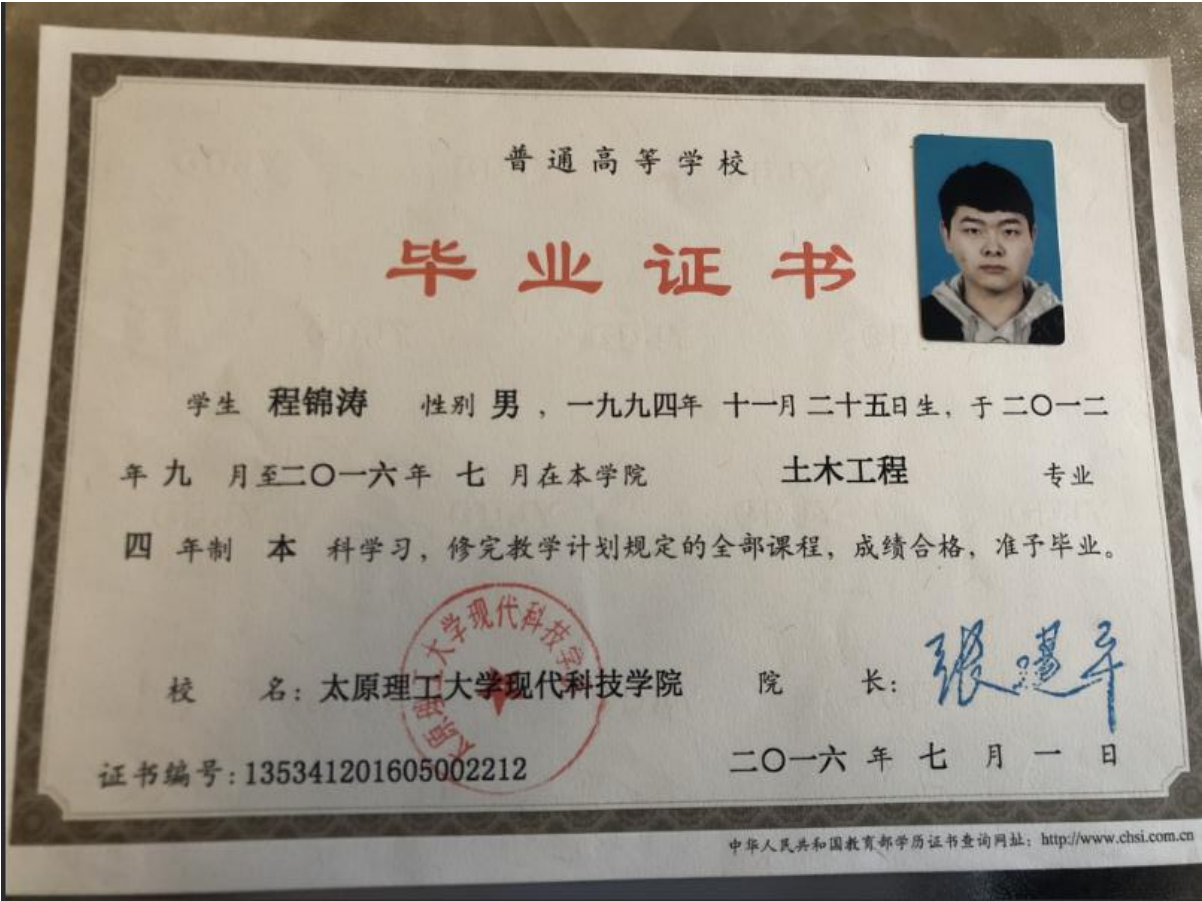 普通高等学校
毕业证书
学生 程锦涛 性别 男 ，一九九四年 十一月 二十五日生，于 二〇一二
年 九 月至二〇一六年 七 月在本学院 土木工程 专业
四 年制 本 科学习，修完教学计划规定的全部课程，成绩合格，准予毕业。
太原理工大学现代科技学院
校 名：太原理工大学现代科技学院 院 长：
证书编号：135341201605002212 二〇一六 年 七 月 一 日
中华人民共和国教育部学历证书查询网址：http://www.chsi.com.cn